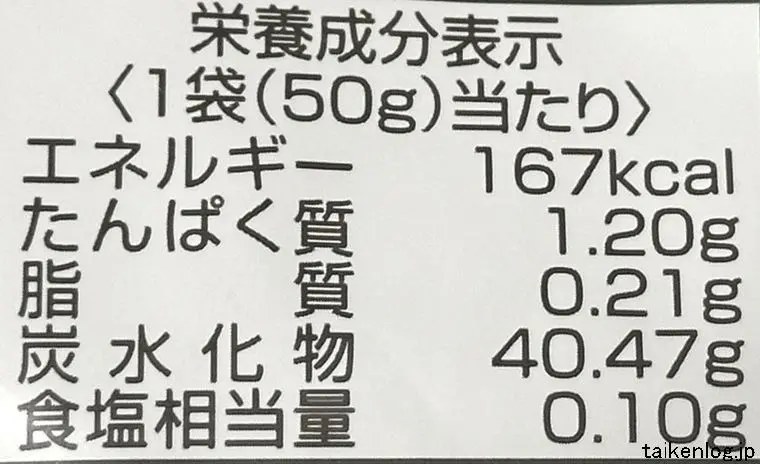 栄養成分表示
〈1袋(50g)当たり〉
エネルギー 167kcal
たんぱく質 1.20g
脂質 0.21g
炭水化物 40.47g
食塩相当量 0.10g
taikenlog.jp